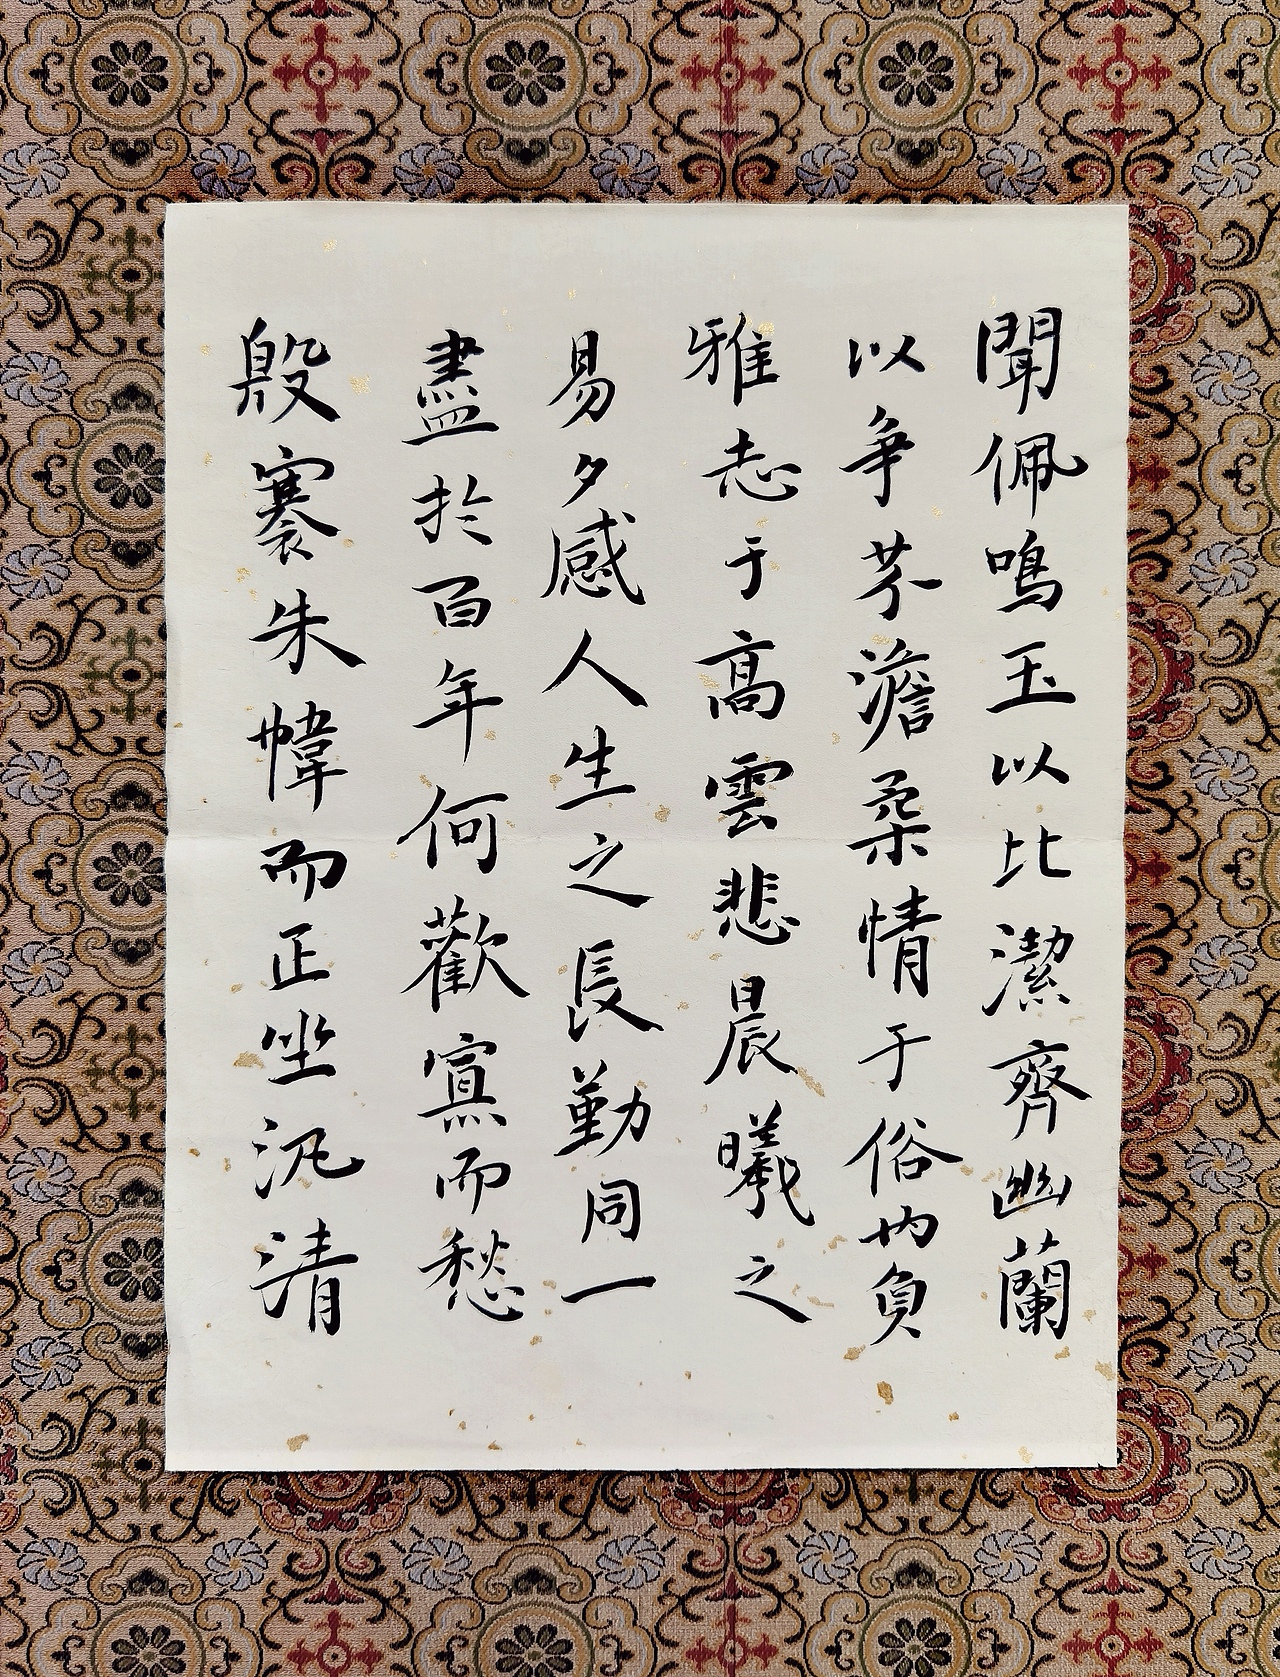 聞佩鳴玉以比潔齊幽蘭
以爭芬澹柔情于俗内負
雅志于髙雲悲晨曦之
易夕感人生之長勤同一
盡於百年何歡寡而愁
殷褰朱幃而正坐汎清